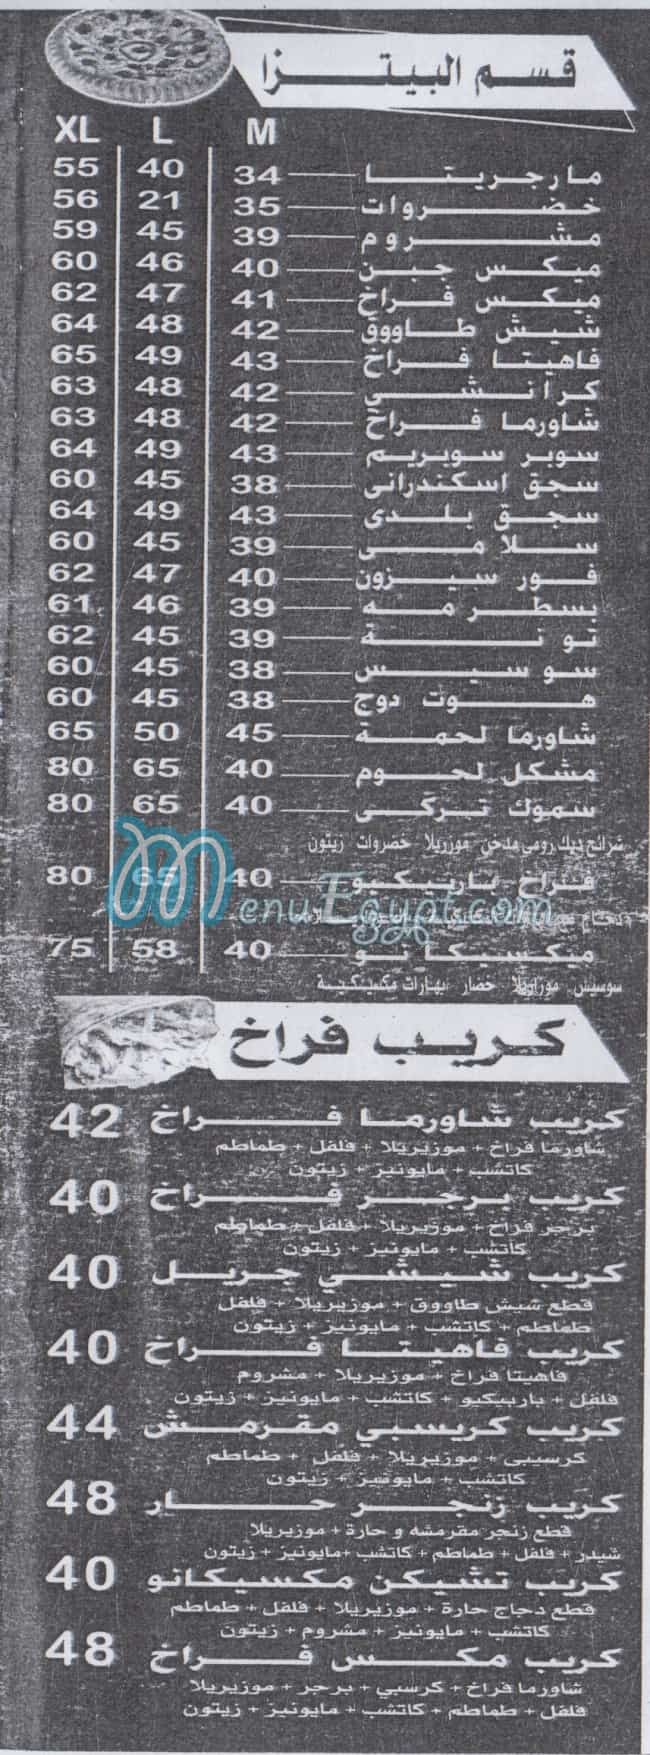 قسم البيتزا
M L XL
مارجريتا 34 40 55
خضروات 35 21 56
مشروم 39 45 59
ميكس جبن 40 46 60
ميكس فراخ 41 47 62
شيش طاووق 42 48 64
فاهيتا فراخ 43 49 65
كرانشى 42 48 63
شاورما فراخ 42 48 63
سوبر سوبريم 43 49 64
سجق اسكندرانى 38 45 60
سجق بلدى 43 49 64
سلامى 39 45 60
فور سيزون 40 47 62
بسطرمه 39 46 61
تونة 39 45 62
سوسيس 38 45 60
هوت دوج 38 45 60
شاورما لحمة 45 50 65
مشكل لحوم 40 65 80
سموك تركى 40 65 80
شرائح ديك رومى مدخن موزريلا خضروات زيتون
فراخ باربيكيو 40 65 80
MenuEgypt.com
ميكسيكانو 40 58 75
سوسيس موزاريلا خضار بهارات مكسيكية
كريب فراخ
كريب شاورما فراخ 42
شاورما فراخ + موزيريلا + فلفل + طماطم
كاتشب + مايونيز + زيتون
كريب برجر فراخ 40
برجر فراخ + موزيريلا + فلفل + طماطم
كاتشب + مايونيز + زيتون
كريب شيشي جريل 40
قطع شيش طاووق + موزيريلا + فلفل
طماطم + كاتشب + مايونيز + زيتون
كريب فاهيتا فراخ 40
فاهيتا فراخ + موزيريلا + مشروم
فلفل + باربيكيو + كاتشب + مايونيز + زيتون
كريب كريسبي مقرمش 44
كرسيبى + موزيريلا + فلفل + طماطم
كاتشب + مايونيز + زيتون
كريب زنجر حار 48
قطع زنجر مقرمشه و حارة + موزيريلا
شيدر + فلفل + طماطم + كاتشب +مايونيز + زيتون
كريب تشيكن مكسيكانو 40
قطع دجاج حارة + موزيريلا + فلفل + طماطم
كاتشب + مايونيز + مشروم + زيتون
كريب مكس فراخ 48
شاورما فراخ + كرسبي + برجر + موزيريلا
فلفل + طماطم + كاتشب + مايونيز + زيتون